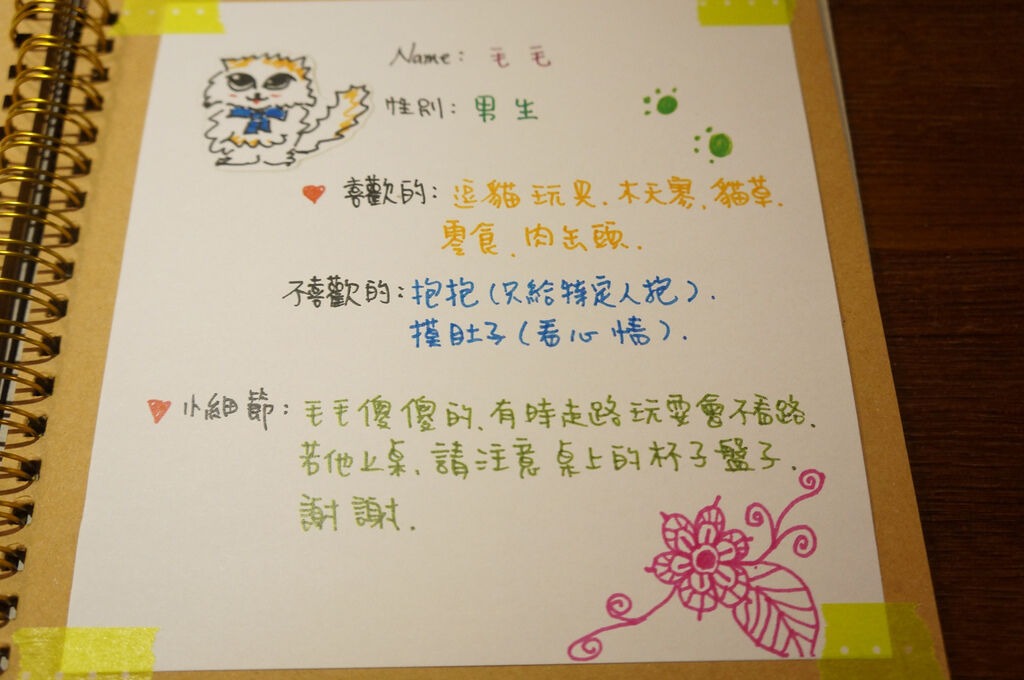 Name: 毛毛
性別: 男生
喜歡的: 逗貓玩具、木天蓼、貓草、
零食、肉缶頭.
不喜歡的: 抱抱(只給特定人抱).
摸肚子(看心情).
小細節: 毛毛傻傻的、有時走路玩耍會不看路、
若他上桌、請注意桌上的杯子盤子、
謝謝.